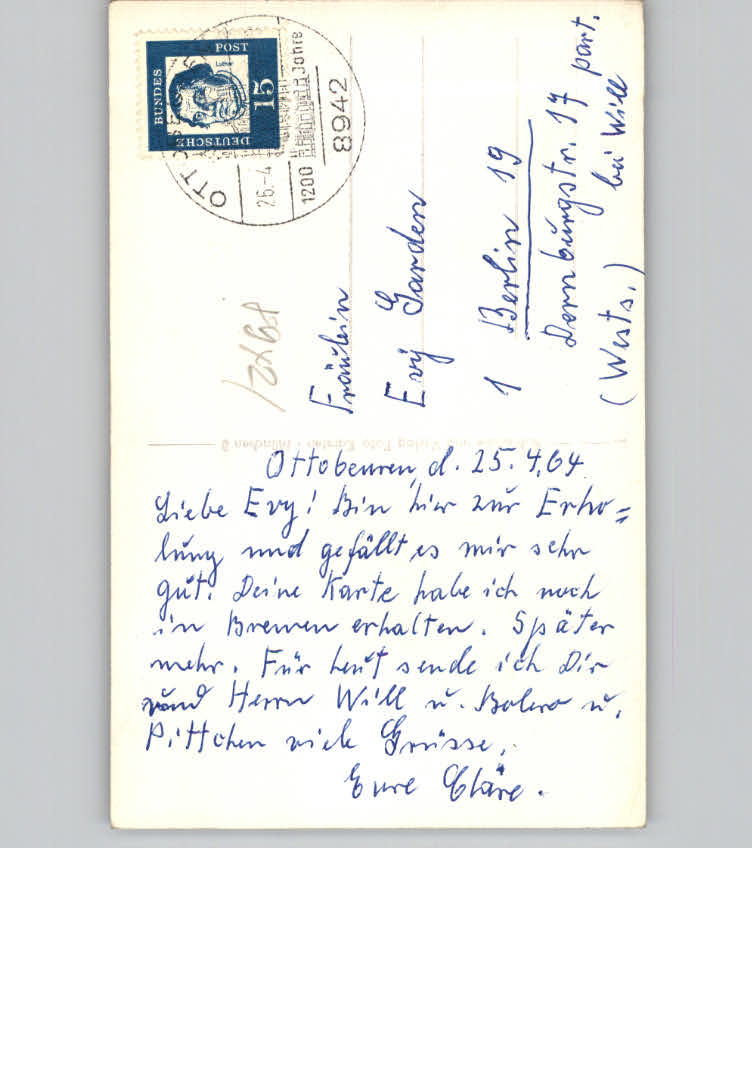 Ottobeuren, d. 25.4.64.
Liebe Evy! Bin hier zur Erho=
lung und gefällt es mir sehr
gut. Deine Karte habe ich noch
in Bremen erhalten. Später
mehr. Für heut sende ich Dir
und Herrn Will u. Bolero u.
Pittchen viele Grüsse,
Eure Cläre.
Fräulein
Evy Garden
1 Berlin 19
Dernburgstr. 17 part.
(Wests.) bei Will
DEUTSCHE
BUNDES
POST
15
Luther
OTTOBE
26.-4
1200 Jahre
8942
Verlag Foto Kersten • München